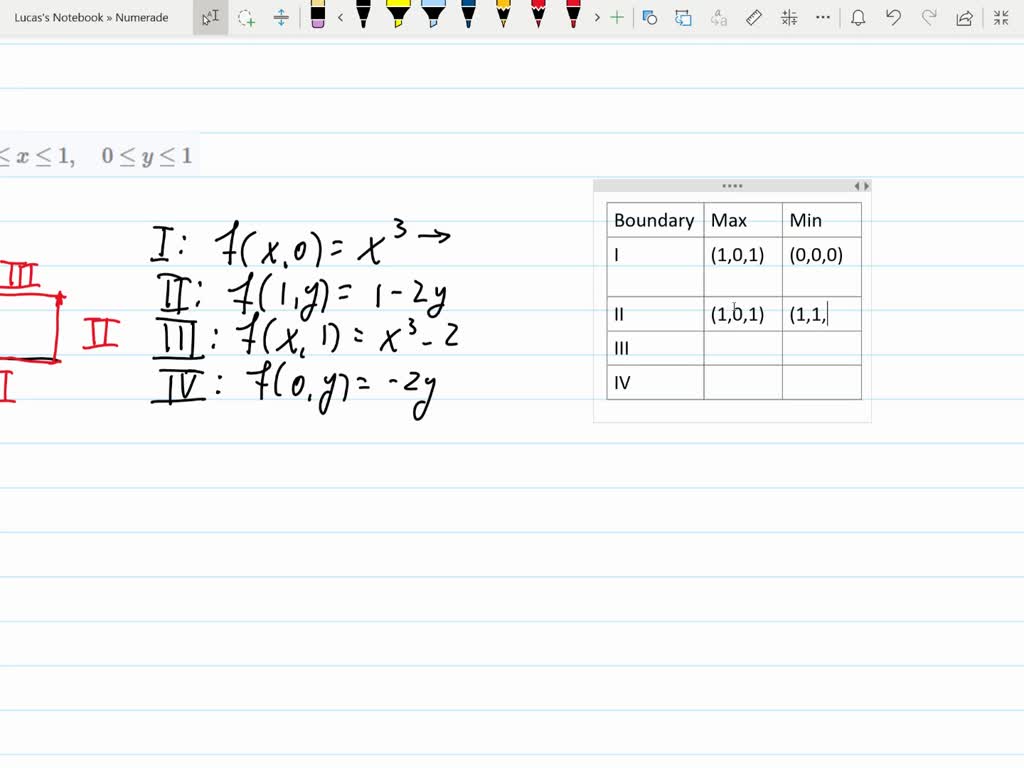 Lucas's Notebook » Numerade
≤ x ≤ 1, 0 ≤ y ≤ 1
I: f(x,0) = x³ →
II: f(1,y) = 1-2y
III: f(x,1) = x³-2
IV: f(0,y) = -2y
III
II
I
Boundary Max Min
I (1,0,1) (0,0,0)
II (1,0,1) (1,1,
III
IV